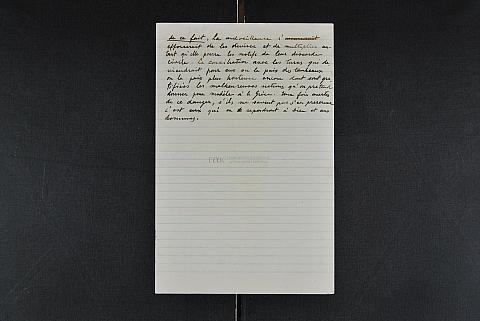 de ce fait, la malveillance s'
efforcerait de les diviser et de multiplier au-
tant qu'elle pourra les motifs de leur discorde.
la conciliation avec les turcs, qui de
viendrait pour eux ou la paix des tombeaux
ou la paix plus honteuse encore dont sont gra
tifiées les malheureuses nations qu'on prétend
donner pour modèles à la Grèce. Une fois avertis
de ce danger, s'ils ne savent pas s'en préserver
c'est eux qui en répondront à dieu et aux
hommes.